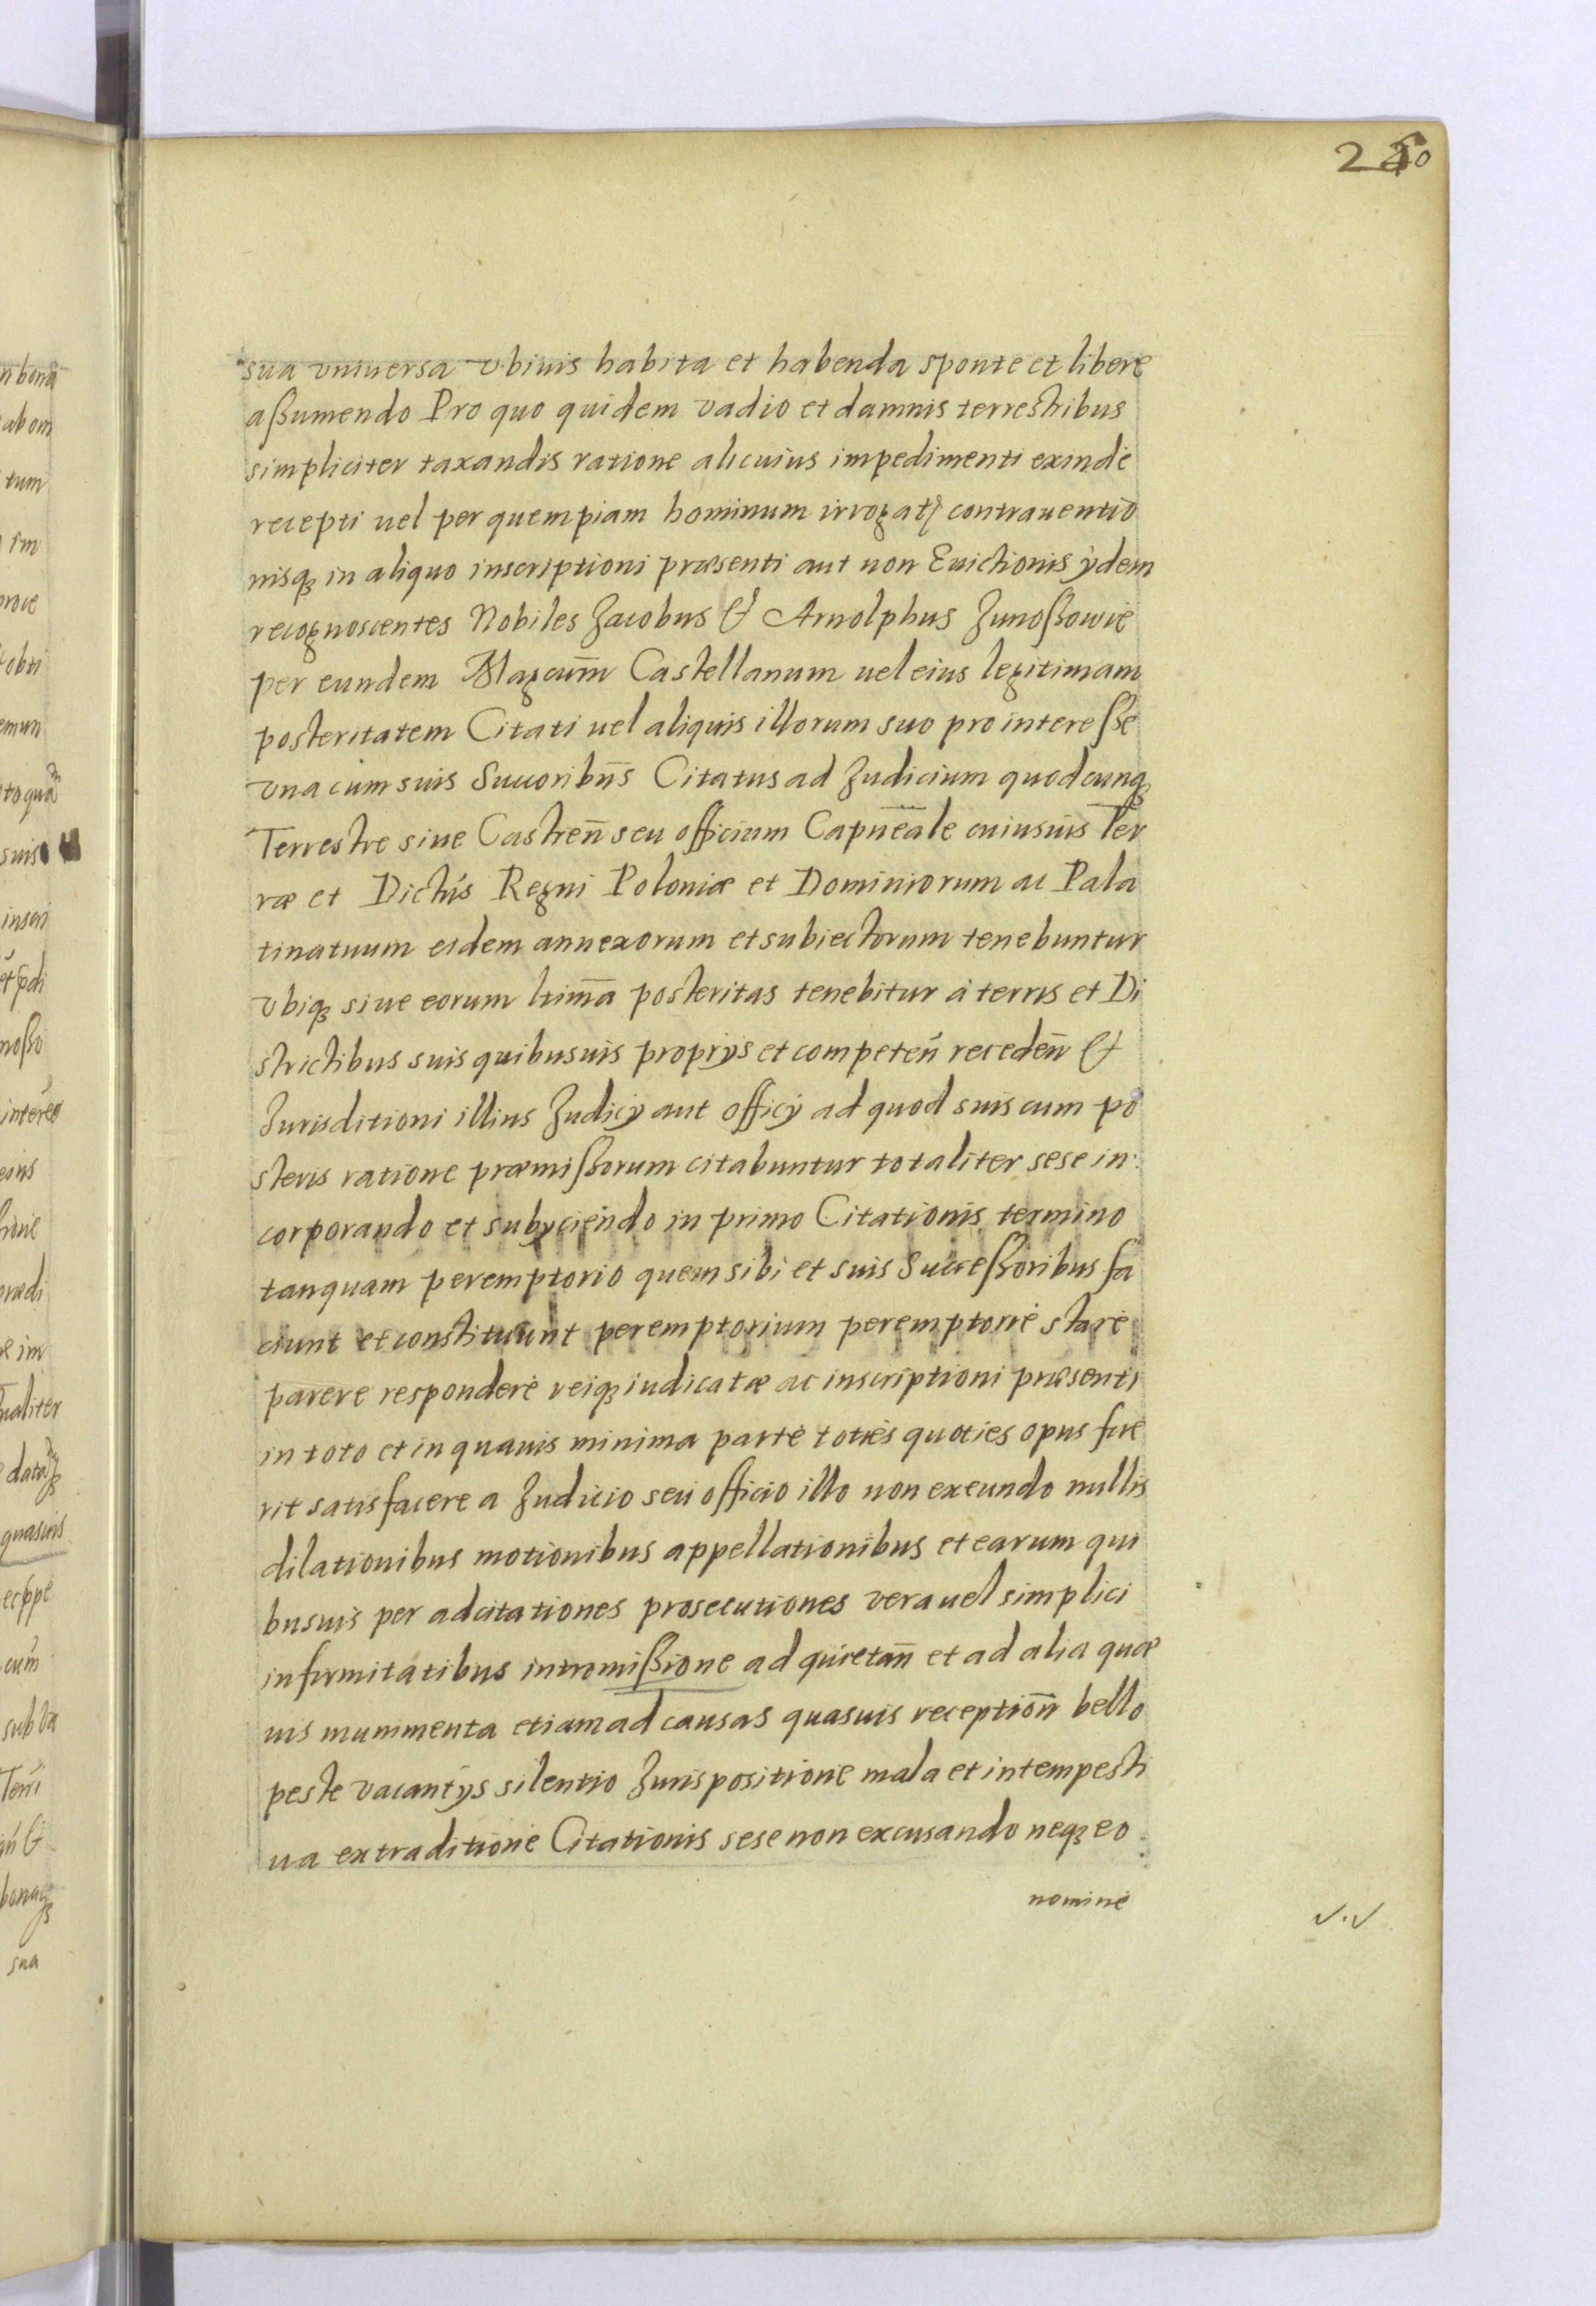 sua vniuersa vbiuis habita et habenda sponte et libere
aßumendo Pro quo quidem vadio et damnis terrestribus
simpliciter taxandis ratione alicuius impedimenti exinde
recepti uel per quempiam hominum irrogatj contrauentio
nisqȝ in aliquo inscriptioni præsenti aut non Euictionis ÿdem
recognoscentes Nobiles Jacobus & Arnolphus Junoßowie
per eundem Magcum̄ Castellanum uel eius legitimam
posteritatem Citati uel aliquis illorum suo pro intereße
vna cum suis Succoribus̄ Citatus ad Judicium quodcunqȝ
Terrestre siue Castren̄ seu officium Capn̄eale cuiusuis Ter
ræ et Dictus Regni Poloniæ et Dominiorum ac Pala
tinatuum eidem annexorum et subiectorum tenebuntur
vbiqȝ siue eorum ltima̅ posteritas tenebitur à terris et Di
strictibus suis quibusuis proprÿs et competen̄ receden̄ &
Jurisditioni illius Judicÿ aut officÿ ad quod suis cum po
steris ratione præmißorum citabuntur totaliter sese in
corporando et subÿciendo in primo Citationis termino
tanquam peremptorio quem sibi et suis Succeßoribus fa
ciunt et constituunt peremptorium peremptorie stare
parere respondere reiqȝ iudicatæ ac inscriptioni præsenti
in toto et in quauis minima parte toties quoties opus fue
rit satisfacere a Judicio seu officio illo non exeundo nullis
dilationibus motionibus appellationibus et earum qui
busuis per adcitationes prosecutiones vera uel simplici
infirmitatibus intromißione ad quietan̄ et ad alia quæ
uis munimenta etiam ad causas quasuis reception̄ bello
peste vacantÿs silentio Jurispositione mala et intempesti
ua extraditione Citationis sese non excusando neqȝ eo
nomine